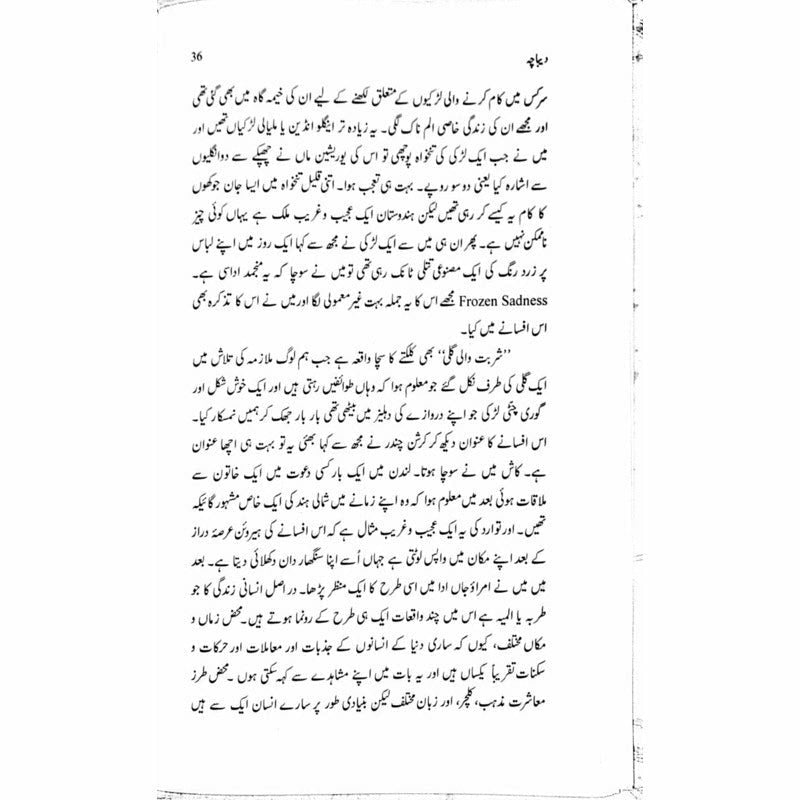 دیباچہ
36
سرکس میں کام کرنے والی لڑکیوں کے متعلق لکھنے کے لیے ان کی خیمہ گاہ میں بھی گئی تھی
اور مجھے ان کی زندگی خاصی الم ناک لگی۔ یہ زیادہ تر اینگلو انڈین یا ملیالی لڑکیاں تھیں اور
میں نے جب ایک لڑکی کی تنخواہ پوچھی تو اس کی یوریشین ماں نے چپکے سے دو انگلیوں
سے اشارہ کیا یعنی دو سو روپے۔ بہت ہی تعجب ہوا۔ اتنی قلیل تنخواہ میں ایسا جان جوکھوں
کا کام یہ کیسے کر رہی تھیں لیکن ہندوستان ایک عجیب و غریب ملک ہے یہاں کوئی چیز
ناممکن نہیں ہے۔ پھر ان ہی میں سے ایک لڑکی نے مجھ سے کہا ایک روز میں اپنے لباس
پر زرد رنگ کی ایک مصنوعی تتلی ٹانک رہی تھی تو میں نے سوچا کہ یہ منجمد اداسی ہے۔
Frozen Sadness مجھے اس کا یہ جملہ بہت غیر معمولی لگا اور میں نے اس کا تذکرہ بھی
اس افسانے میں کیا۔
”شربت والی گلی“ بھی کلکتے کا سچا واقعہ ہے جب ہم لوگ ملازمہ کی تلاش میں
ایک گلی کی طرف نکل گئے جو معلوم ہوا کہ وہاں طوائفیں رہتی ہیں اور ایک خوش شکل اور
گوری چٹی لڑکی جو اپنے دروازے کی دہلیز میں بیٹھی تھی بار بار جھک کر ہمیں نمسکار کیا۔
اس افسانے کا عنوان دیکھ کر کرشن چندر نے مجھ سے کہا بھئی یہ تو بہت ہی اچھا عنوان
ہے۔ کاش میں نے سوچا ہوتا۔ لندن میں ایک بار کسی دعوت میں ایک خاتون سے
ملاقات ہوئی بعد میں معلوم ہوا کہ وہ اپنے زمانے میں شمالی ہند کی ایک خاص مشہور گائیکہ
تھیں۔ اور توارد کی یہ ایک عجیب و غریب مثال ہے کہ اس افسانے کی ہیروئن عرصۂ دراز
کے بعد اپنے مکان میں واپس لوٹتی ہے جہاں اُسے اپنا سنگھار دان دکھلائی دیتا ہے۔ بعد
میں میں نے امراؤ جاں ادا میں اسی طرح کا ایک منظر پڑھا۔ در اصل انسانی زندگی کا جو
طربہ یا المیہ ہے اس میں چند واقعات ایک ہی طرح کے رونما ہوتے ہیں۔ محض زماں و
مکاں مختلف، کیوں کہ ساری دنیا کے انسانوں کے جذبات اور معاملات اور حرکات و
سکنات تقریباً یکساں ہیں اور یہ بات میں اپنے مشاہدے سے کہہ سکتی ہوں۔ محض طرز
معاشرت مذہب، کلچر، اور زبان مختلف لیکن بنیادی طور پر سارے انسان ایک سے ہیں